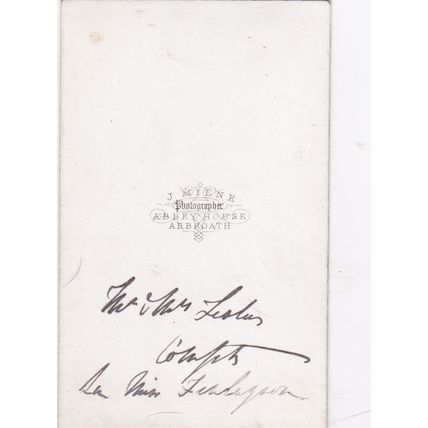 J. MILNE
Photographer
ABBEY HOUSE
ARBROATH
Mr & Mrs Leslies
Compts
Miss